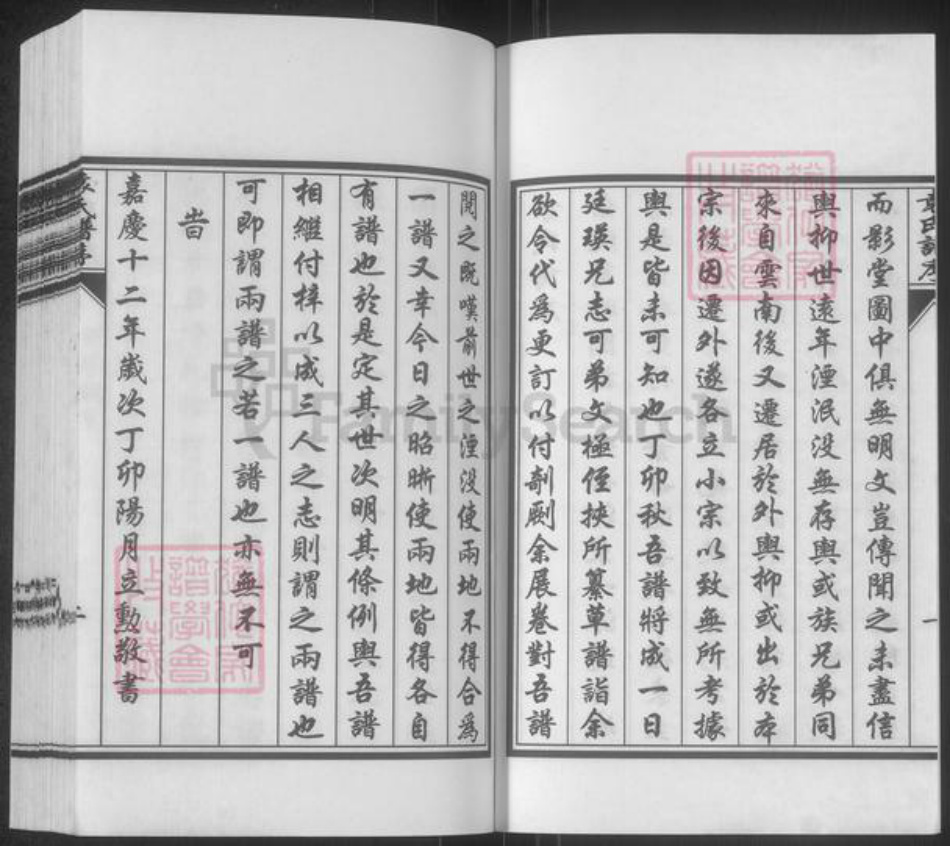 袁氏譜序
一
而影堂圖中俱無明文豈傳聞之未盡信
與抑世遠年湮泯沒無存與或族兄弟同
來自雲南後又遷居於外與抑或出於本
宗後因遷外遂各立小宗以致無所考據
與是皆未可知也丁卯秋吾譜將成一日
廷瑛兄志可弟文極侄挾所纂草譜詣余
欲令代為更訂以付剞劂余展卷對吾譜
閱之既嘆前世之湮沒使兩地不得合為
一譜又幸今日之昭晰使兩地皆得各自
有譜也於是定其世次明其條例與吾譜
相繼付梓以成三人之志則謂之兩譜也
可即謂兩譜之若一譜也亦無不可
旹
嘉慶十二年歲次丁卯陽月立勳敬書
FamilySearch